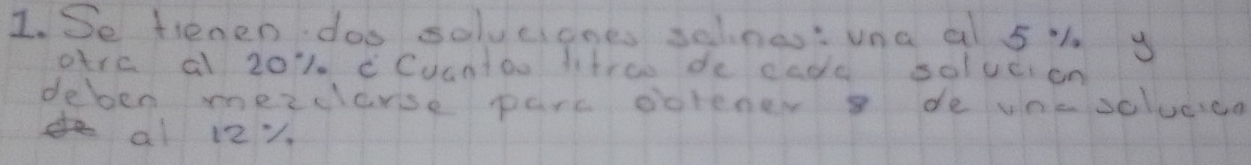 1. Se tienen dos soluciones salinas: una al 5% y
otra al 20% ¿Cuantos litros de cada solución
deben mezclarse para obtener de una solucion
al 12%.